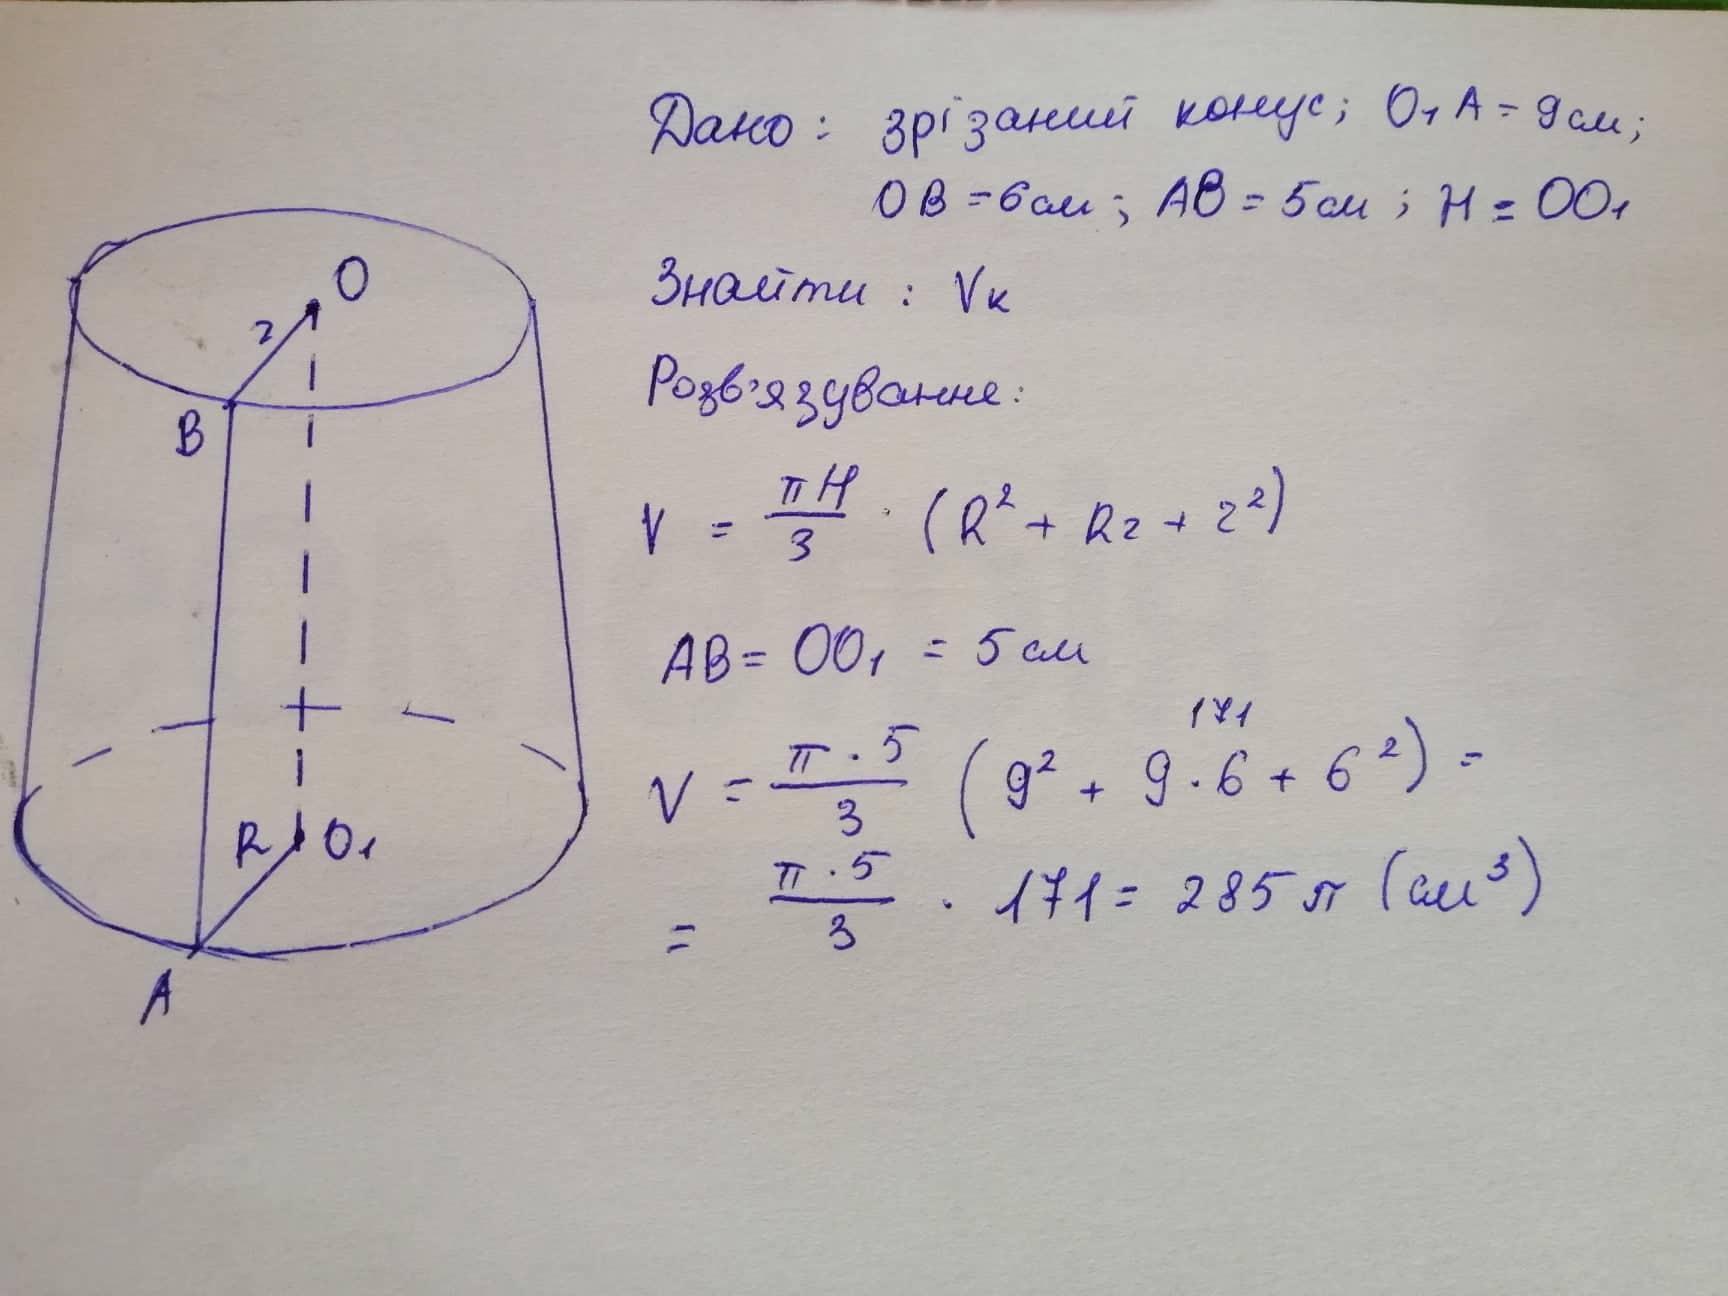 Дано: зрізаний конус; O₁A = 9см;
OB = 6см; AB = 5см; H = OO₁
Знайти: Vк
Розв'язування:
V = πH/3 · (R² + Rr + r²)
AB = OO₁ = 5 см
171
V = π·5/3 (9² + 9·6 + 6²) =
= π·5/3 · 171 = 285π (см³)
O
r
B
R O₁
A